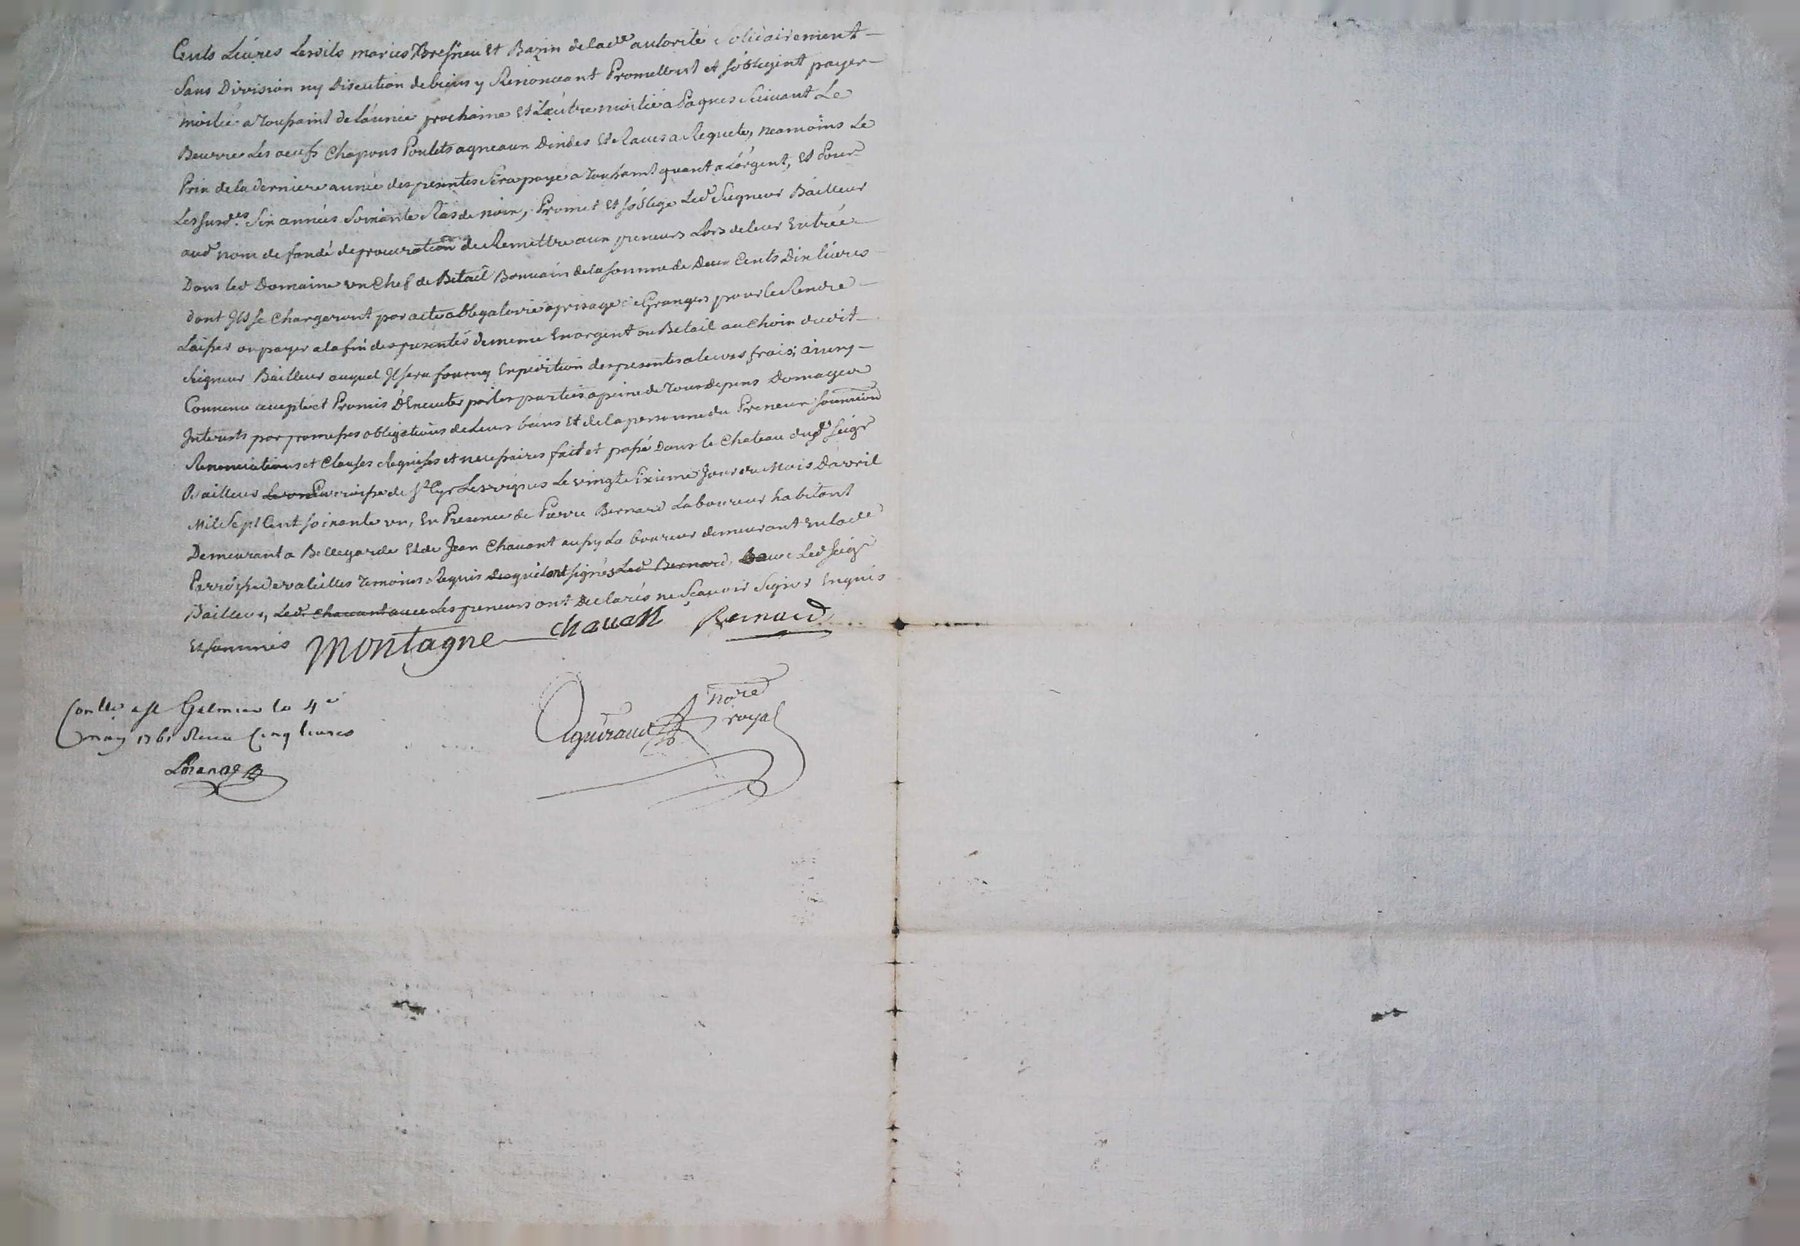 Cents Livres Lesdits maries et Bazin de lade autorité Solidairement
Sans Division ny Discution de biens y Renonceant Promettent et sobligent payer
moitié a toussaint de Lannée prochaine Et Lautre moitié a Paques Suivant Le
Beurre Les oeufs Chapons Poulets agneaux Dindes Et Raves a Requete, neamoins Le
Prix de la derniere année des presentes Sera payé a toussaint quant a Largent, Et Pour
Les susdes Six années Soixante Ras de noix, Promet Et soblige Ledt Seigneur Bailleur
audt nom de fondé de procuration de Remettre aux preneurs Lors de leur Entrée
Dans Led Domaine un Chef de Betail Bonnain de la somme de Deux Cents Dix livres
dont Ils se Chargeront par acte obligatoire a prisage de Grangers pour le Rendre
Laisser ou payer a la fin des presentes de meme En argent ou Betail au Choix dudit
Seigneur Bailleur auquel Il sera fourny Expedition des presentes a leurs frais; ainsy
Convenu accepté et Promis d'Executer par les parties a peine de tous depens Domages
Interests par promesses obligations de Leurs biens Et de la personne du Preneur soumissions
Renonciations et Clauses Requises et necessaires fait et passé Dans le Chateau dudt Seigr
Bailleur Parroisse de St Cyr Les vignes Le vingt Sixieme Jour du Mois D'avril
Mil Sept Cent soixante un, En Presence de Pierre Bernard Laboureur habitant
Demeurant a Bellegarde Et de Jean Chavant aussy Laboureur demeurant En lade
Parroisse de valeilles temoins Requis Lesquels ont signés Ledt Bernard, avec Ledt Seigr
Bailleur, Ledt Chavant avec Les preneurs ont Declarés ne Scavoir Signer Enquis
Et sommés Montagne Chavant Bernard
Conllé a St Galmier le 4e
may 1761 Recu Cinq livres
nore
royal